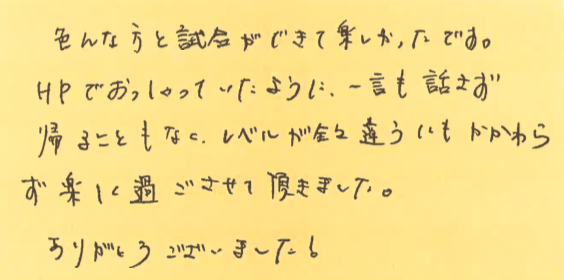 色んな方と試合ができて楽しかったです。
HPでおっしゃっていたように、一言も話さず
帰ることもなく、レベルが全く違うにもかかわら
ず楽しく過ごさせて頂きました。
ありがとうございました!